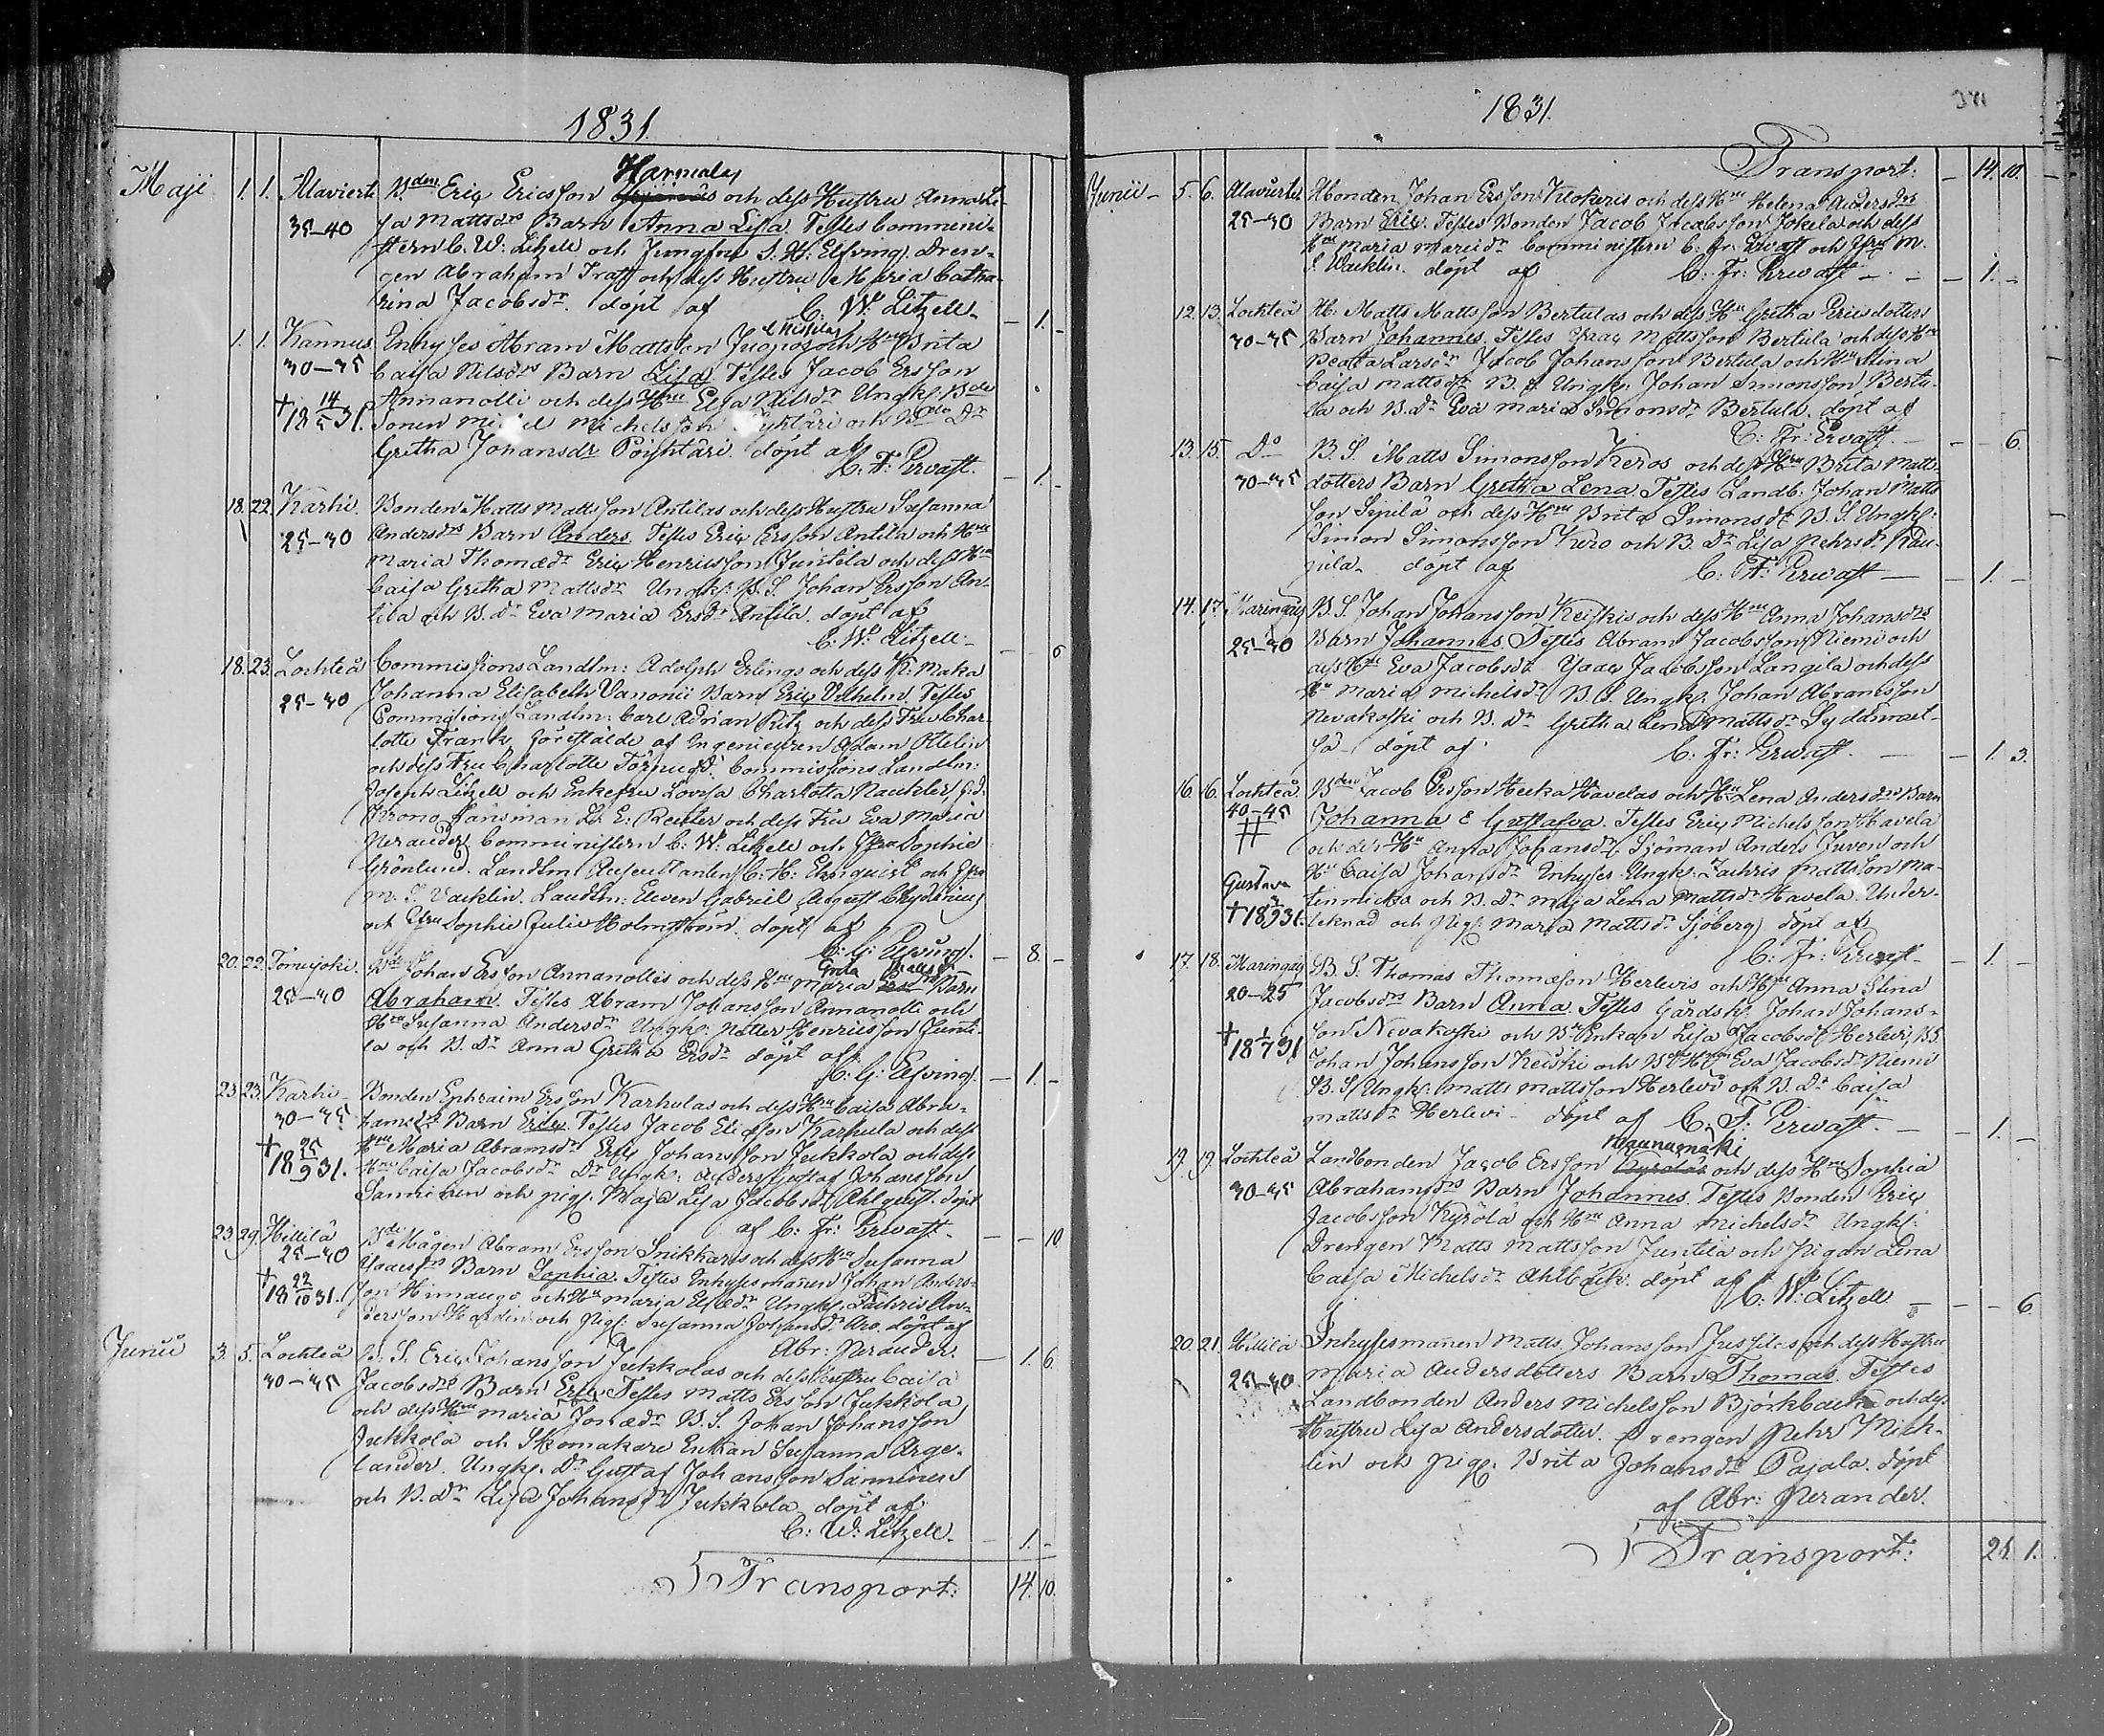 1831.
Maji 1. 1. Alavierte Bden Eric Ericsson Hannulas och dess Hustru Anna Li-
35-40 sa Mattsdrs Barn Anna Lisa. Testes Commini-
stern C. W. Litzell och Jungfru S. H. Elfving. Dren-
gen Abraham Tratt och dess Hustru Maria Catha-
rina Jacobsdr. döpt af C. W. Litzell. - 1. -
1. 1. Kannus Inhyses Abram Mattsson och Hu Brita
30-35 Caisa Nilsdrs Barn Lisa. Testes Jacob Ersson
† 18 14/5 31. Annanolli och dess Hu Elsa Nilsdr Ungk. Bde
Sonen Michelsson och Bde Dr
Gretha Johansdr Pöyhtäri. döpt af
C. F. Ervast. - 1. -
18. 22. Karhi. Bonden Matts Mattsson Antilas och dess Hustru Susanna
25-30 Andersdrs Barn Anders. Testes Eric Ersson Antila och Hu
Maria Thomædr Eric Henricsson Juntila och dess Hu
Caisa Gretha Mattsdr Ungk. B. S. Johan Ersson An-
tila och B. Dr Eva Maria Ersdr Antila. döpt af
C. W. Litzell. - - 6
18. 23. Lochteå Commissions Landtm: Adolph Erlings och dess K. Maka
25-30 Johanna Elisabeth Vanonii Barn Eric Vilhelm. Testes
Commissions Landtm: Carl Adrian Ritz och dess Fru Char-
lotte Frank, föreställde af Ingenieuren Adam
och dess Fru Charlotte Törnudd. Commissions Landtm:
Joseph Litzell och Enkefru Lovisa Charlotta
Krono Länsman L. E. Reuter och dess Fru Eva Maria
Nerander Comministern C. W. Litzell och Jfru Sophie
Grönlund. Landtm. Auscultanten C. H. och Jfru
M. S. Vacklin. Landtm. Eleven Gabriel August Chydenius
och Jfru Sophie Julie Holmström. döpt af
C. G. Elfving. - 8. -
20. 22. Tomujoki. Bde Johan Ersson Annanollis och dess Hu Maria Greta Barn
25-30 Abraham. Testes Abram Johansson Annanolli och
Hu Susanna Andersdr Ungk: Petter Henricsson Junti-
la och B. Dr Anna Gretha Ersdr döpt af
C. G. Elfving. - 1. -
23. 23. Karhi- Bonden Ephraim Ersson Karhulas och dess Hu Caisa Abra-
30-35 hamsdrs Barn Eric. Testes Jacob Elicsson Karhula och dess
† 18 25/9 31. Hu Maria Abramsdr Eric Johansson Jukkola och dess
Hu Caisa Jacobsdr Dr Ungk: Anders Gustaf Johansson
Sanninen och pig. Maja Lisa Jacobsdr Ahlquist. döpt
af C. Fr: Ervast. - - 10
23. 29. Hillilä Bde Mågen Abram Ersson Snikkaris och dess Hu Susanna
25-30 Isaacsdrs Barn Sophia. Testes Inhysesmannen Johan Anders-
† 18 22/10 31. son Himango och Hu Maria Ungk. Zachris An-
dersson och Pig. Susanna Johansdr Aro. döpt af
Abr: Nerander. - 1. 6
Junii 3. 5. Lochteå B. S. Eric Johansson Jukkolas och dess Hustru Caisa
30-35 Jacobsdrs Barn Eric. Testes Matts Ersson Jukkola
och dess Hu Maria Jonædr B. S. Johan Johansson
Jukkola och Skomakare Enkan Susanna Arge-
lander. Ungk. Dr Gustaf Johansson Sanninen
och B. Dr Lisa Johansdr Jukkola döpt af
C. W. Litzell. - 1. -
Transport: 14. 10.
1831.
Transport: - 14. 10.
Junii- 5. 6. Alavierte Bonden Johan Ersson Klokeris och dess Hu Helena Andersdrs
25-30 Barn Eric. Testes Bonden Jacob Jacobsson Jokela och dess
Hu Maria Comministern C. Fr. Ervast och Jfru M.
S. Wacklin. döpt af C. Fr: Ervast - - 1. -
12. 13. Lochteå B: Matts Mattsson Bertulas och dess Hu Gretha Ericsdotters
30-35 Barn Johannes. Testes Isaac Mattsson Bertula och dess Hu
Beata Larsdr Jacob Johansson Bertula och Hu Stina
Caisa Mattsdr B. S. Ungk. Johan Simonsson Bertu-
la och B. Dr Eva Maria Simonsdr Bertula. döpt af
C. Fr: Ervast. - - 6.
13. 15. Do B. S. Matts Simonsson Keros och dess Hu Brita Matts-
30-35 dotters Barn Gretha Lena. Testes Landb. Johan Matts-
son Sipilä och dess Hu Brita Simonsdr B. S. Ungk:
Simon Simonsson Kero och B. Dr Lisa Pehrsdr Rau-
pila. döpt af C. F. Ervast - - 1. -
14. 17. Maringais B. S. Johan Johansson Keiskis och dess Hu Anna Johansdrs
25-30 Barn Johannes. Testes Abram Jacobsson Niemi och
dess Hu Eva Jacobsdr Isaac Jacobsson Langila och dess
Hu Maria Michelsdr B. S. Ungk. Johan Abramsson
Nevakoski och B. Dr Gretha Lena Mattsdr
döpt af C. Fr: Ervast. - - 1. 3.
16. 16. Lochteå Bden Jacob Ersson Havelas och Hu Lena Andersdrs Barn
40-45 Johanna & Gustafva. Testes Eric Michelsson Havela
och dess Hu Anna Johansdr, Sjöman Anders Juven och
Gustava Hu Caisa Johansdr Inhyses Ungk. Zachris Mattsson Ma-
tinmicko och B. Dr Maja Lena Mattsdr Havela. Under-
teknad och Pig. Maria Mattsdr Sjöberg döpt af
C. Fr: Ervast - - 1. -
17. 18. Maringais B. S. Thomas Thomæson Herlevis och Hu Anna Stina
20-25 Jacobsdrs Barn Anna. Testes Gårdsk: Johan Johans-
† 18 1/7 31 son Nevakoski och Bde Enkan Lisa Jacobsdr Herlevi, BS.
Johan Johansson Keiski och Hu Eva Jacobsdr Niemi
B. S. Ungk: Matts Mattsson Herlevi och B. Dr Caisa
Mattsdr Herlevi - döpt af C. F. Ervast. - - 1. -
19. 19. Lochteå Landbonden Jacob Ersson Maununmäki och dess Hu Sophia
30-35 Abrahamsdrs Barn Johannes. Testes Bonden Eric
Jacobsson Kyrölä och Hu Anna Michelsdr Ungk.
Drengen Matts Mattsson Juntila och Pigan Lena
Caisa Michelsdr Ahlbäck. döpt af
C. W. Litzell - - - 6
20. 21. Hillilä Inhysesmannen Matts Johansson Jussilas och dess Hustru
25-30. Maria Andersdotters Barn Thomas. Testes
Landbonden Anders Michelsson Björkbacka och dess
Hustru Lisa Andersdotter. Drengen Pehr Mick-
lin och pig. Brita Johansdr Pajala. döpt
af Abr: Nerander.
Transport: 21. 1.